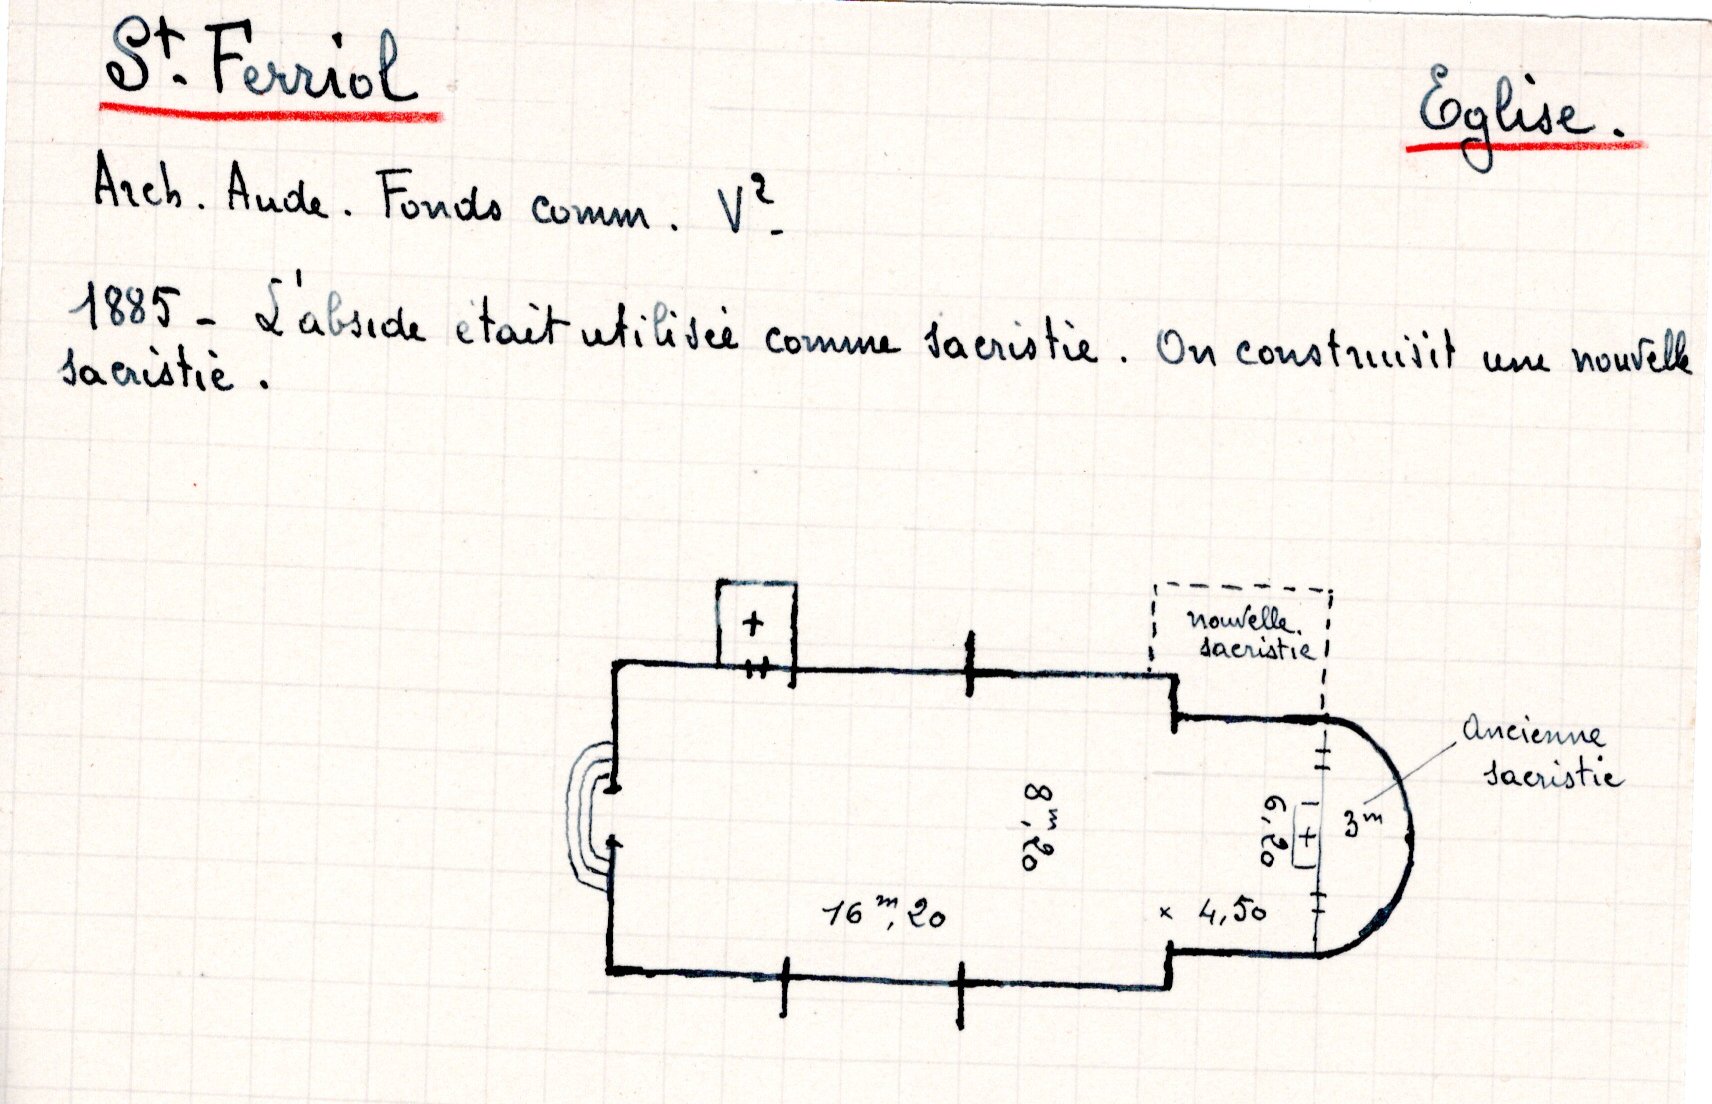 St. Ferriol
Eglise.
Arch. Aude. Fonds comm. V²-
1885 - L'abside était utilisée comme sacristie. On construisit une nouvelle
sacristie.
nouvelle
sacristie
Ancienne
sacristie
8m,20
6,20
3m
16m,20
x 4,50